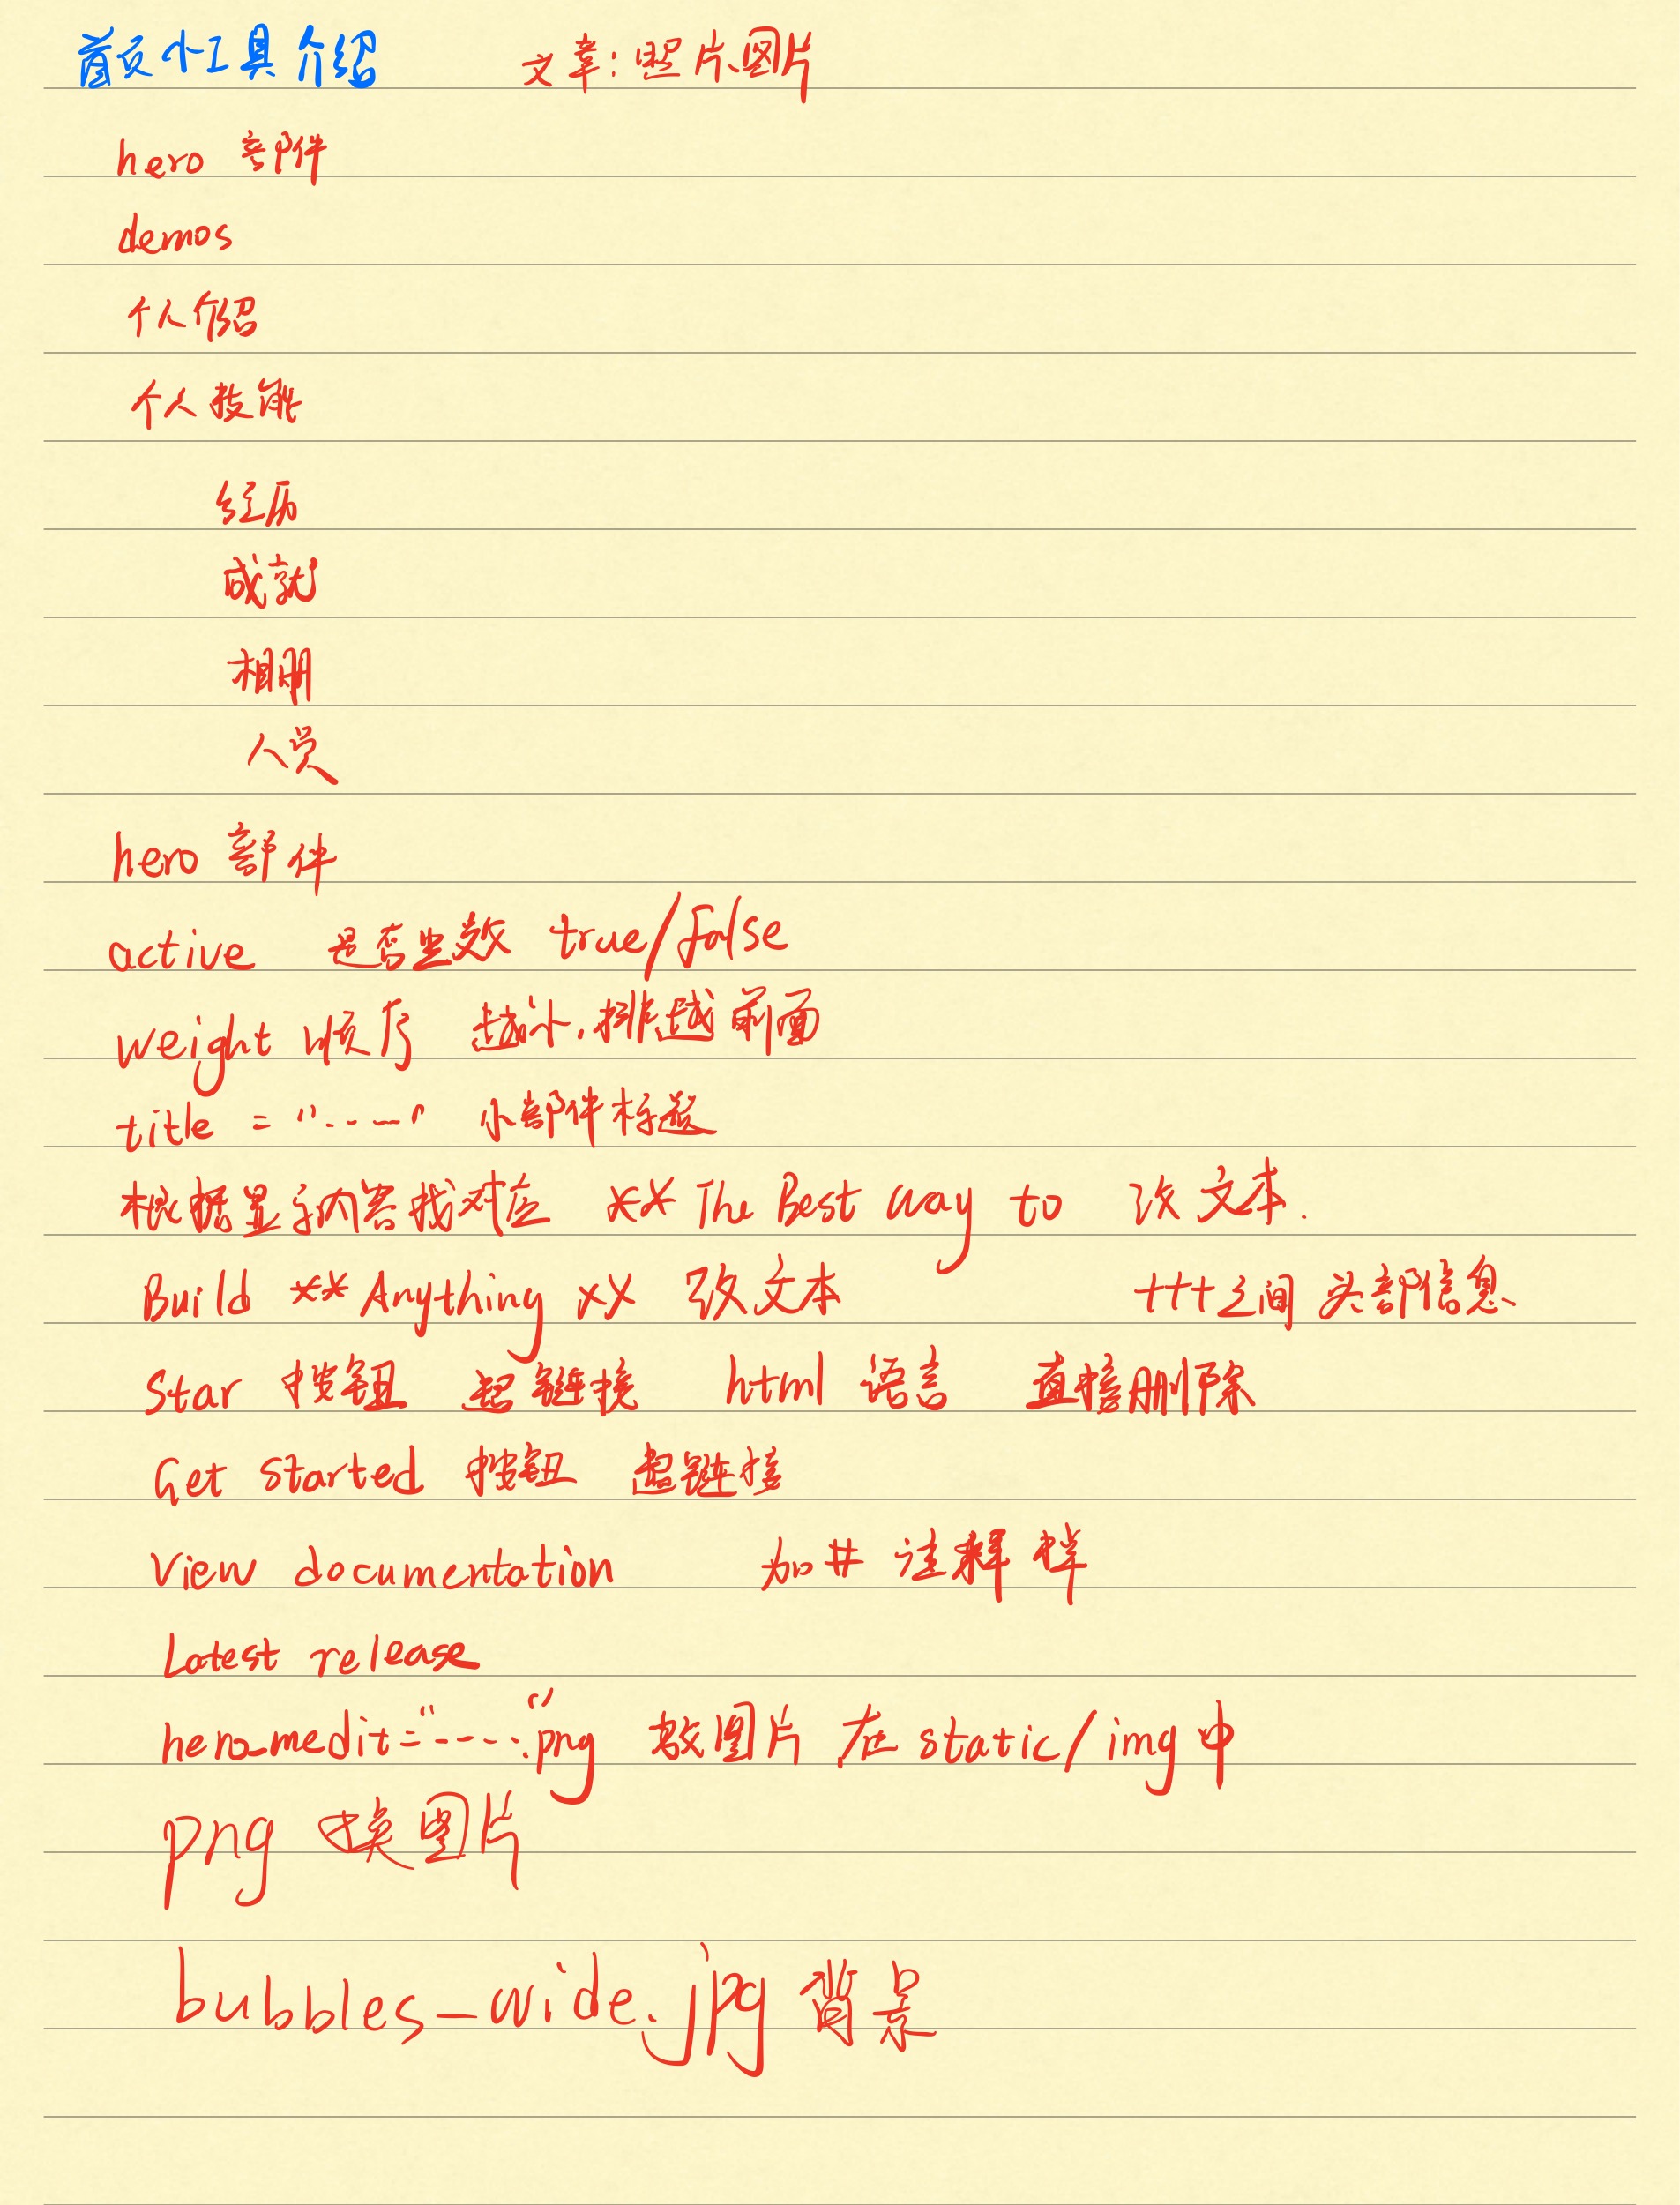 首页小工具介绍 文章:照片、图片
hero 部件
demos
个人介绍
个人技能
经历
成就
相册
人员
hero 部件
active 是否生效 true/false
weight 顺序 越小,排越前面
title = "......" 小部件标题
根据显示内容找对应 ** The Best way to 改文本.
Build ** Anything ** 改文本 +++之间 头部信息
Star 按钮 超链接 html 语言 直接删除
Get started 按钮 超链接
View documentation 加 # 注释掉
Latest release
hero_medit="......"png 放图片 在 static/img 中
png 换图片
bubbles_wide.jpg 背景